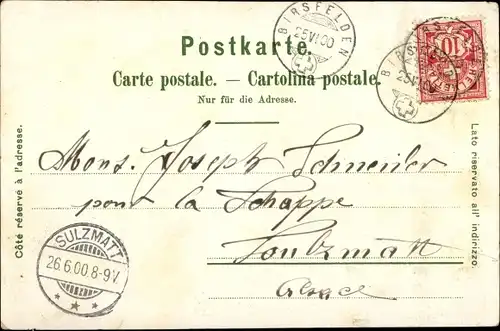 Postkarte.
Carte postale. — Cartolina postale.
Nur für die Adresse.
BIRSFELDEN
25 VI 00
BIRSFELDEN
25 VI 00
10
Côté réservé à l'adresse.
Lato riservato all' indirizzo.
Mons. Joseph Schneider
pour la Schappe
Soultzmatt
Alsace
SULZMATT
26.6.00 8-9V.